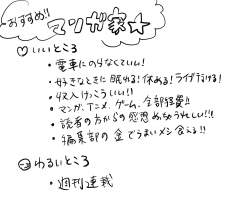 おすすめ!!
マンガ家☆
♡いいところ
・電車にのらなくていい!
・好きなときに眠れる!休める!ライブ行ける!
・収入けっこういい!!
・マンガ、アニメ、ゲーム、全部経費!!
・読者の方からの感想めっちゃうれしい!!
・編集部の金でうまいメシ食える!!
わるいところ
・週刊連載